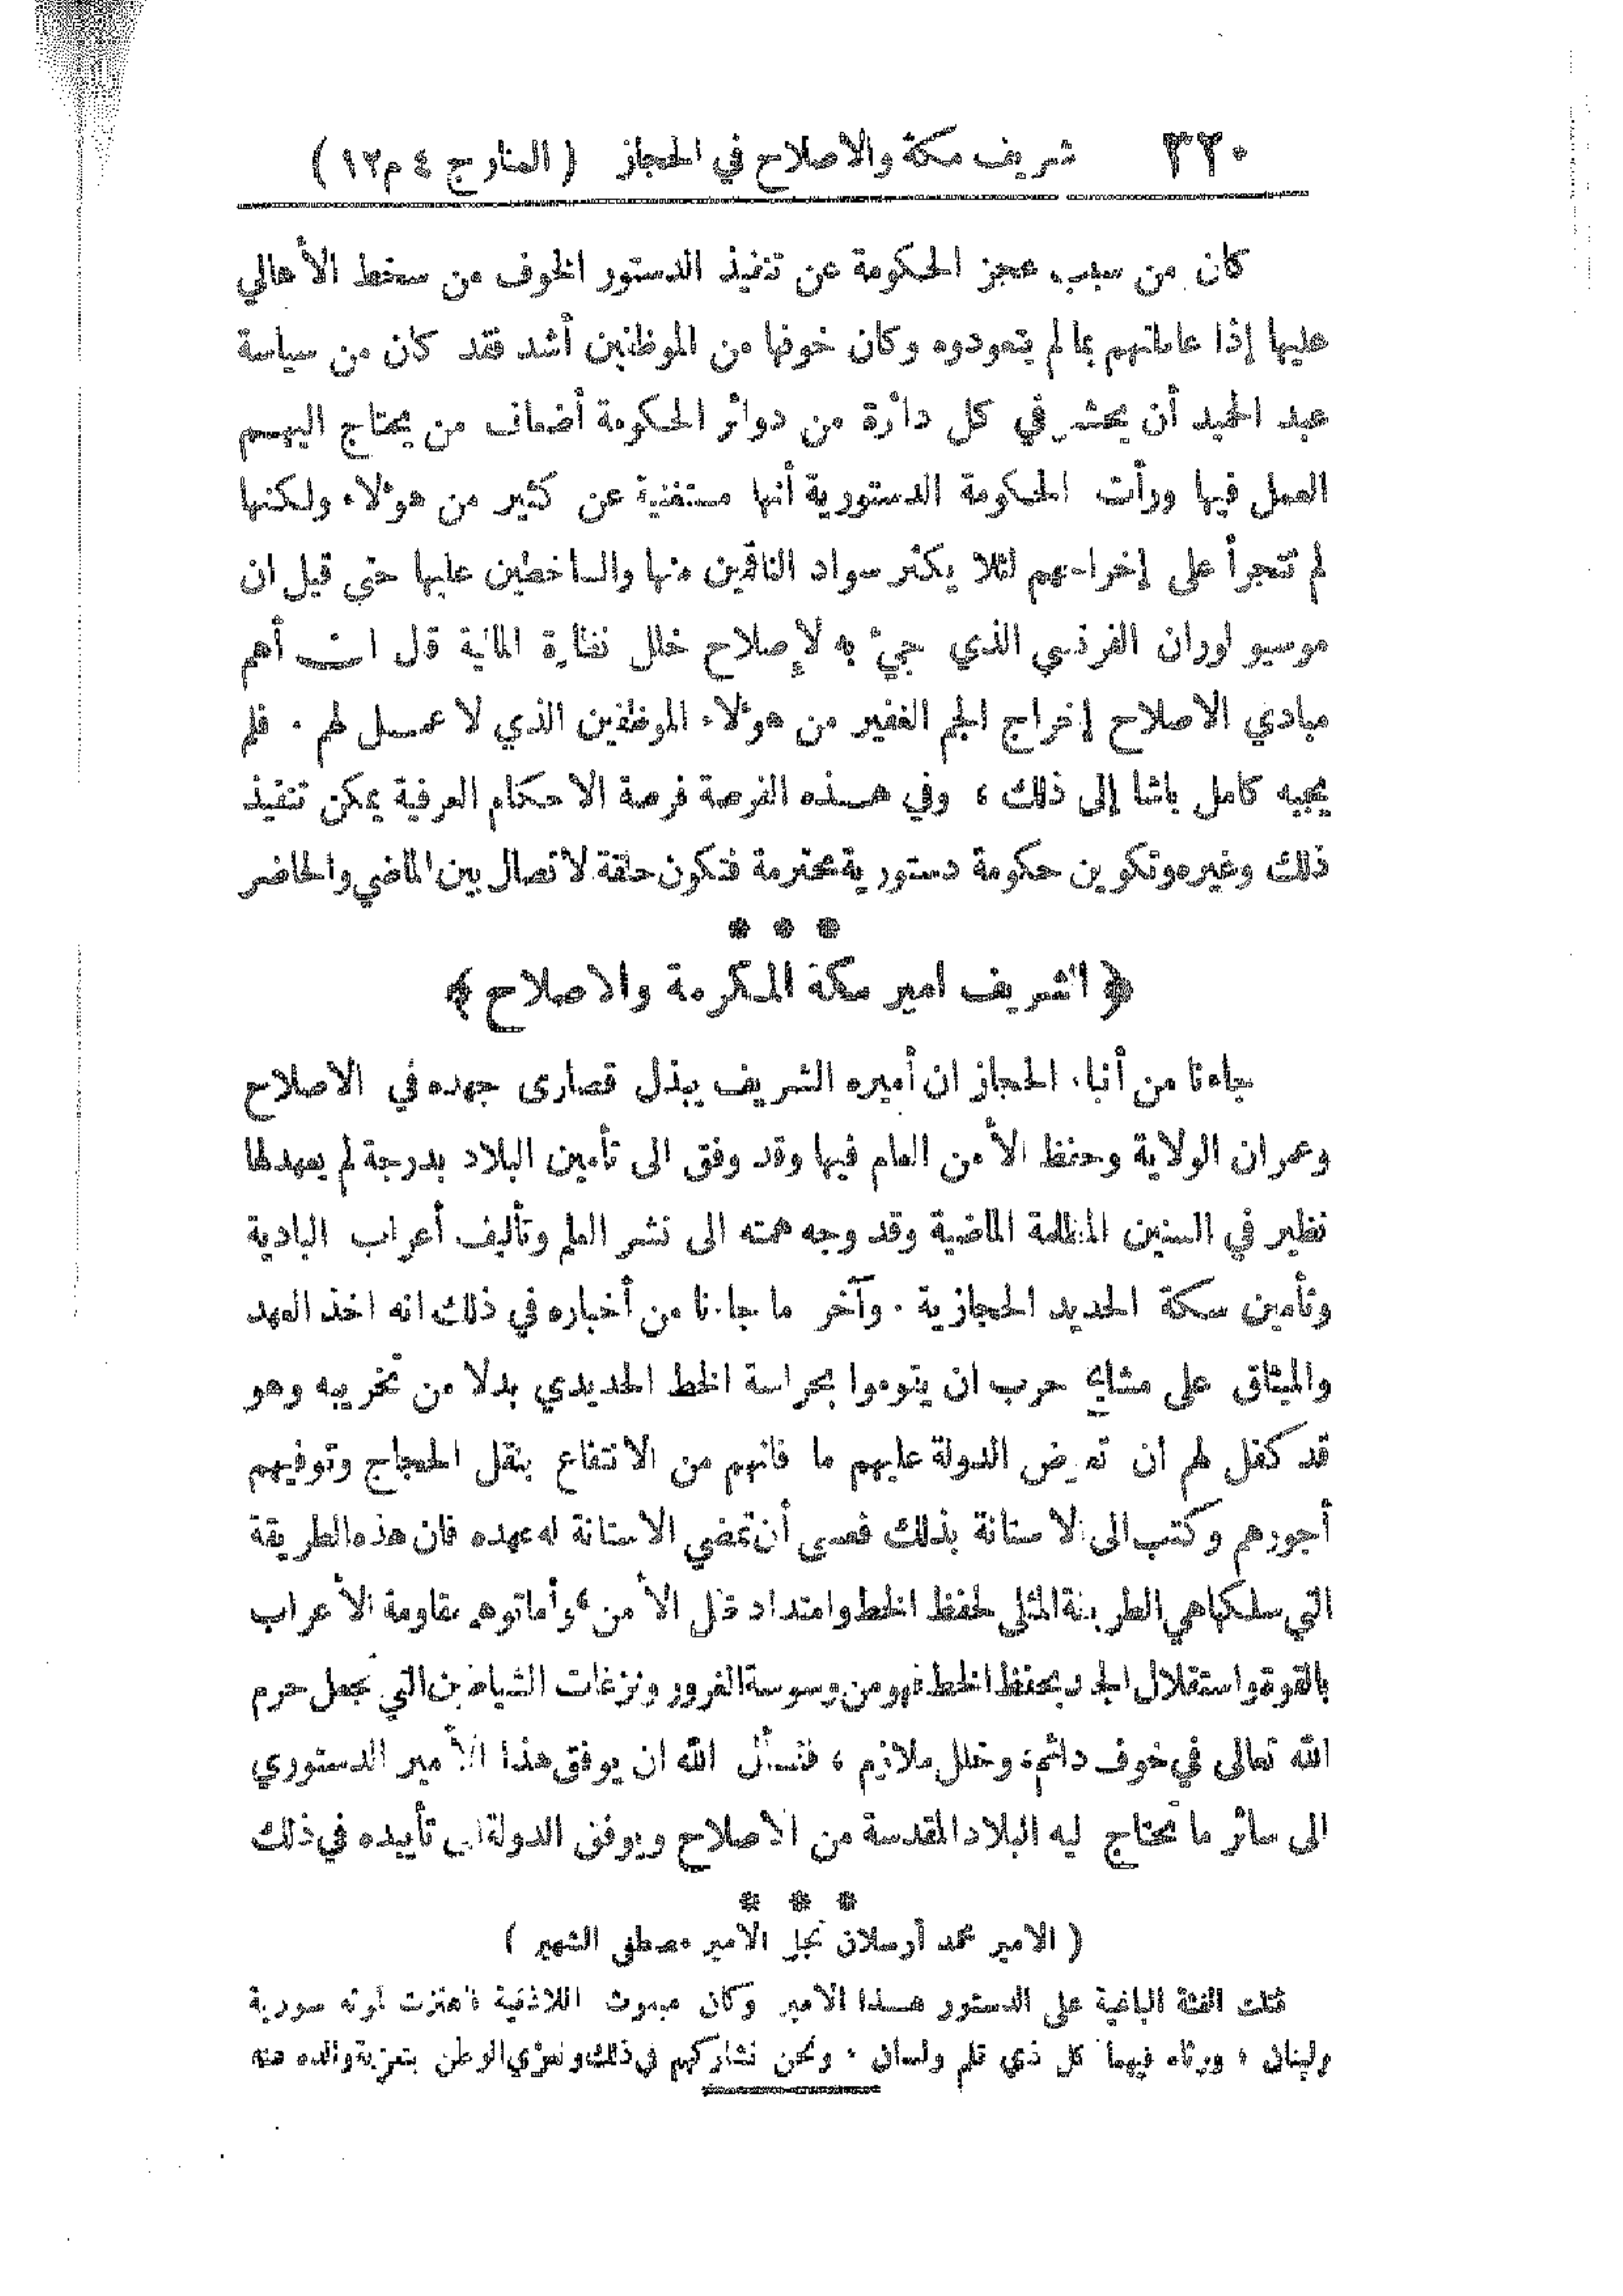 ٣٢٠ شريف مكة والاصلاح في الحجاز ( المنار ج ٤ م ١٢ )
كان من سبب عجز الحكومة عن تنفيذ الدستور الخوف من سخط الأهالي
عليها إذا عاملتهم بما لم يتعودوه وكان خوفها من الموظفين أشد فقد كان من سياسة
عبد الحميد أن يحشر في كل دائرة من دوائر الحكومة أضعاف من يحتاج اليهم
العمل فيها ورأت الحكومة الدستورية أنها مستغنية عن كثير من هؤلاء ولكنها
لم تتجرأ على إخراجهم لئلا يكثر سواد الناقمين منها والساخطين عليها حتى قيل ان
موسيو لوران الفرنسي الذي جيء به لإصلاح خلل نظارة المالية قال ان أهم
مبادي الاصلاح إخراج الجم الغفير من هؤلاء الموظفين الذي لا عمل لهم . فلم
يجبه كامل باشا إلى ذلك ، وفي هذه الفرصة فرصة الاحكام العرفية يمكن تنفيذ
ذلك وغيره وتكوين حكومة دستورية محترمة فتكون حلقة لاتصال بين الماضي والحاضر
* * *
﴿ الشريف امير مكة المكرمة والاصلاح ﴾
جاءنا من أنباء الحجاز ان أميره الشريف يبذل قصارى جهده في الاصلاح
وعمران الولاية وحفظ الأمن العام فيها وقد وفق الى تأمين البلاد بدرجة لم يعهد لها
نظير في السنين المظلمة الماضية وقد وجه همته الى نشر العلم وتأليف أعراب البادية
وتأمين سكة الحديد الحجازية . وآخر ما جاءنا من أخباره في ذلك انه اخذ العهد
والميثاق على مشايخ حرب ان يقوموا بحراسة الخط الحديدي بدلا من تخريبه وهو
قد كفل لهم ان تعوض الدولة عليهم ما فاتهم من الانتفاع بنقل الحجاج وتوفيهم
أجورهم وكتب الى الاستانة بذلك فعسى أن تمضي الاستانة له عهده فان هذه الطريقة
التي سلكها هي الطريقة المثلى لحفظ الخط وامتداد ظل الأمن ، وأما توهم مقاومة الأعراب
بالقوة واستقلال الجند بحفظ الخط فهو من وسوسة الغرور ونزغات الشياطين التي تجعل حرم
الله تعالى في خوف دائم ، وخلل ملازم ، فنسأل الله ان يوفق هذا الأمير الدستوري
الى سائر ما تحتاج ليه البلاد المقدسة من الاصلاح ويوفق الدولة الى تأييده في ذلك
* * *
( الامير محمد أرسلان نجل الأمير مصطفى الشهير )
قتلت الفئة الباغية على الدستور هذا الامير وكان مبعوث اللاذقية فاهتزت لموته سورية
ولبنان ، ورثاه فيهما كل ذي قلم ولسان ، ونحن نشاركهم في ذلك ونعزي الوطن بتعزية والده عنه